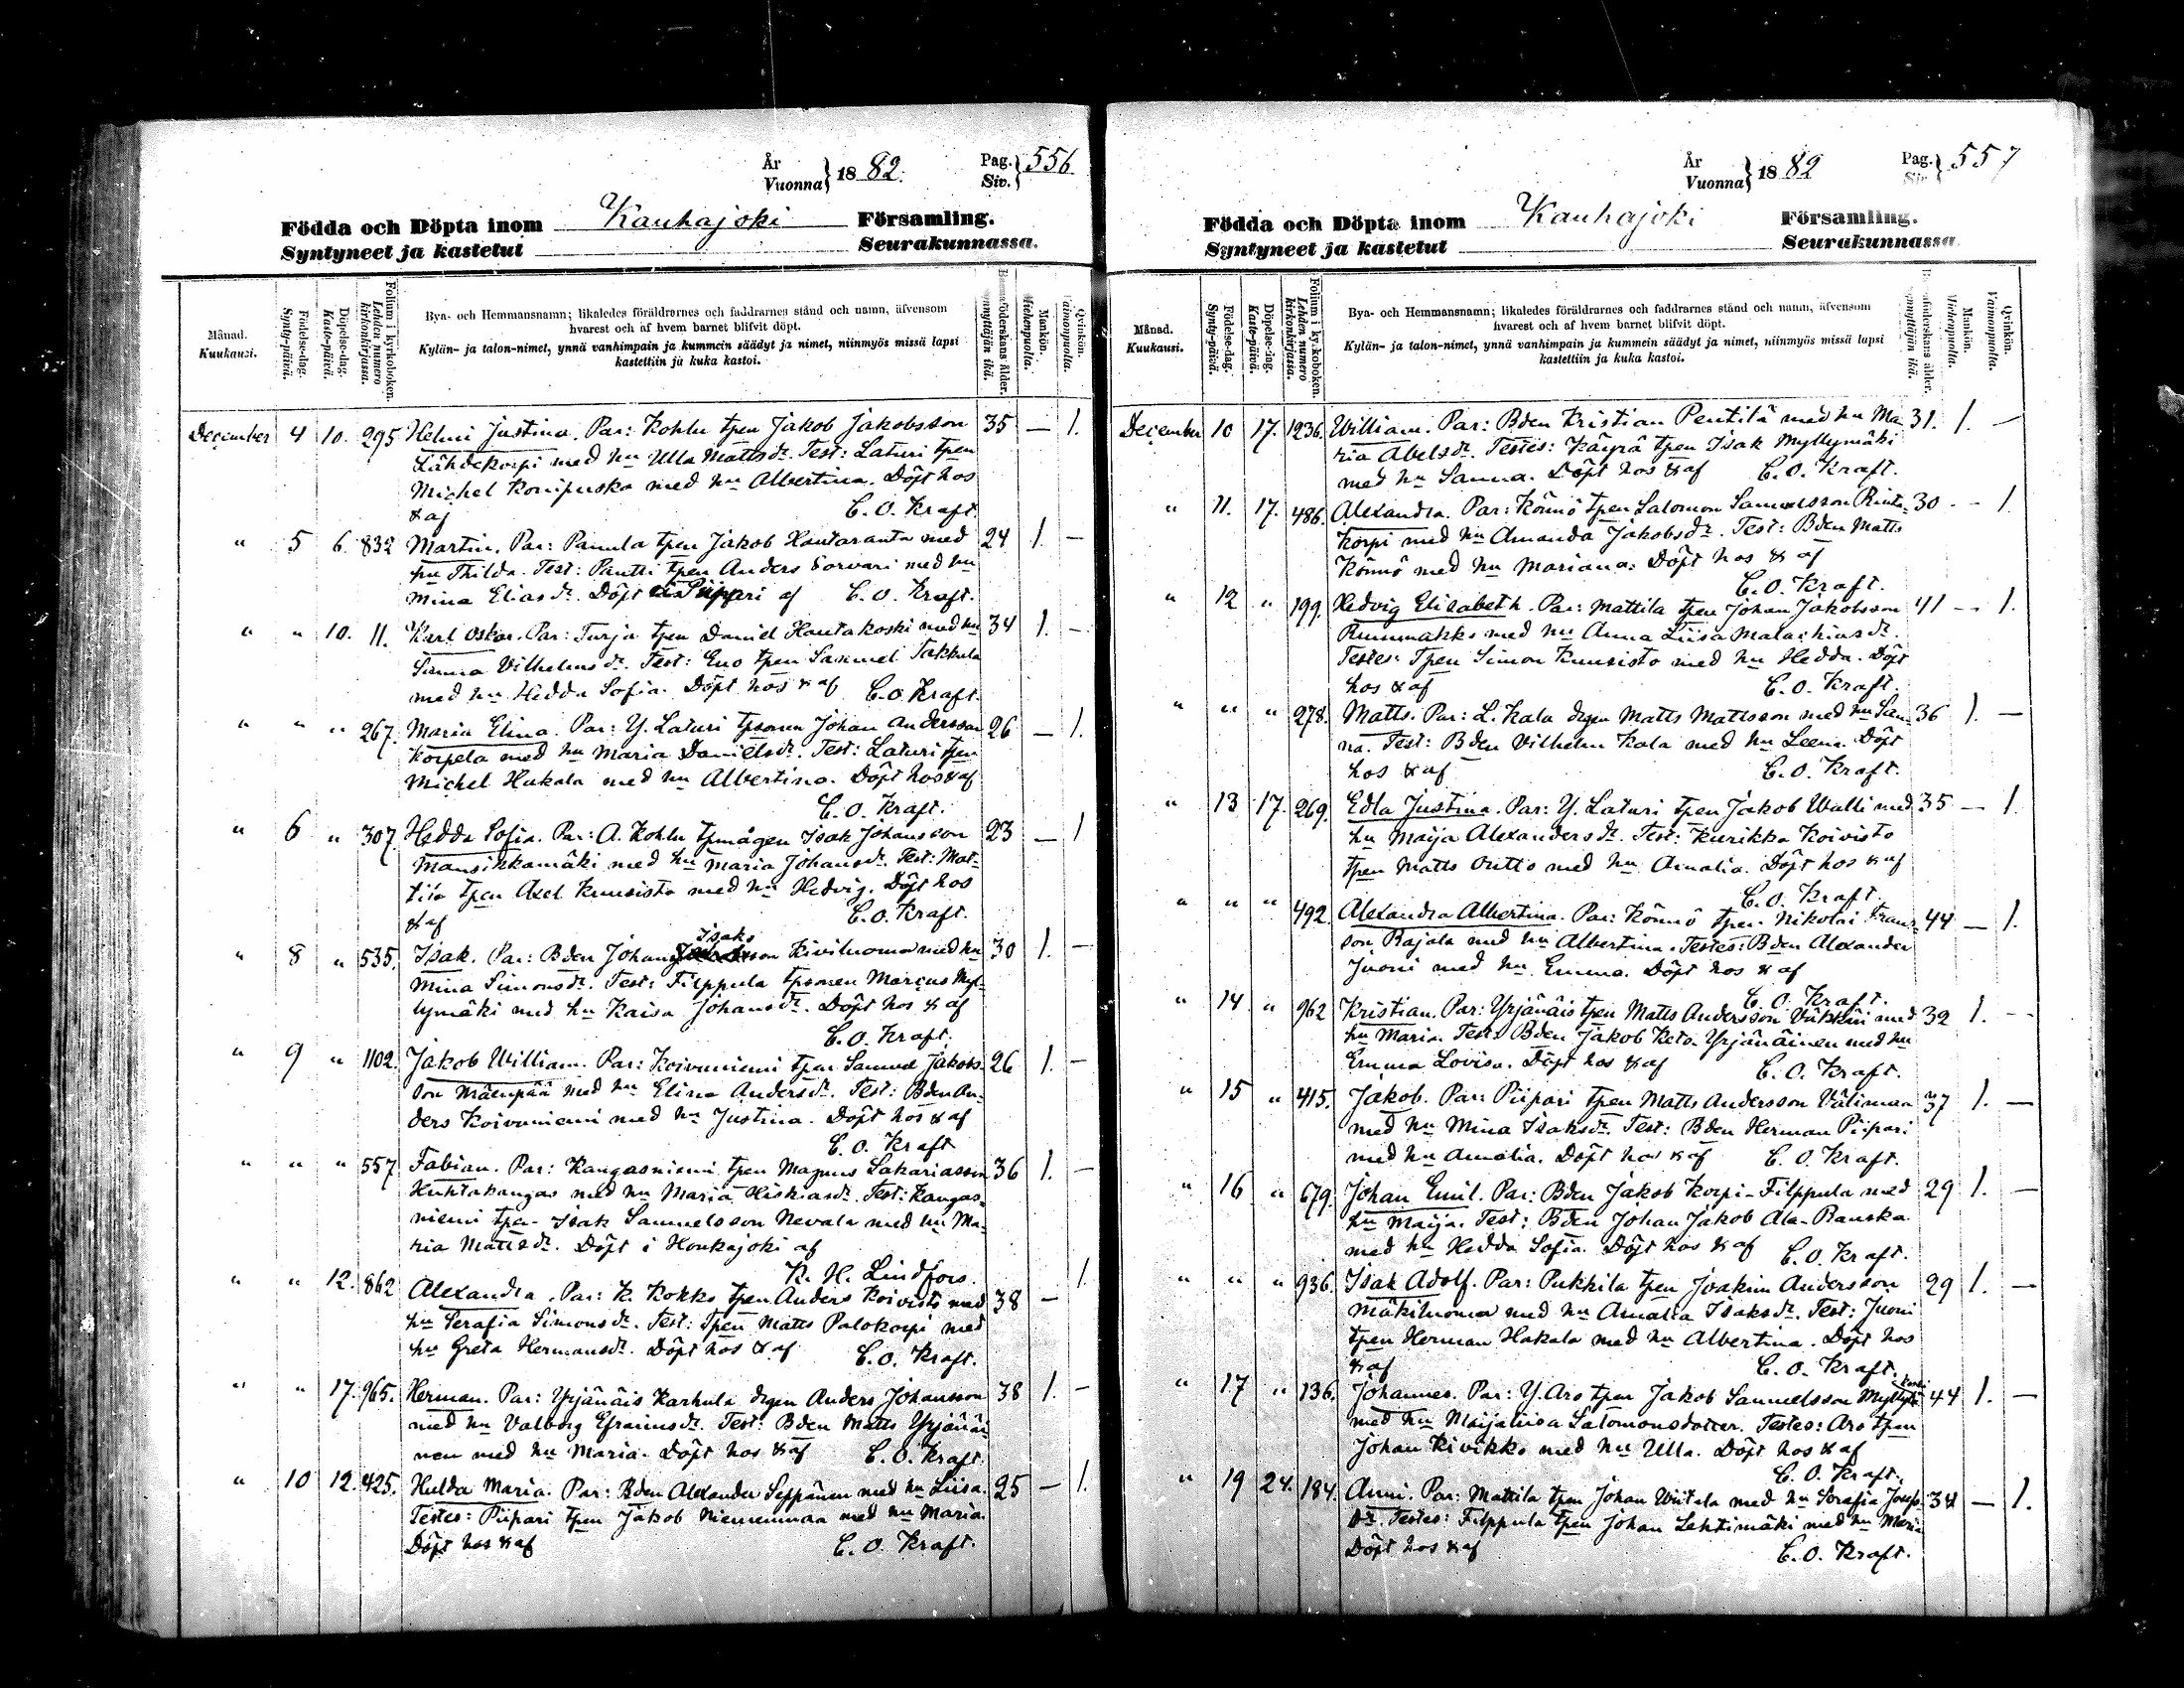 År
Vuonna } 1882.
Pag.
Siv. } 556
Födda och Döpta inom Kauhajoki Församling.
Syntyneet ja kastetut Seurakunnassa.
Månad.
Kuukausi.
Födelse-dag.
Synty-päivä.
Döpelse-dag.
Kaste-päivä.
Folium i kyrkoboken.
Lehden numero kirkonkirjassa.
Bya- och Hemmansnamn; likaledes föräldrarnes och faddrarnes stånd och namn, äfvensom
hvarest och af hvem barnet blifvit döpt.
Kylän- ja talon-nimet, ynnä vanhimpain ja kummein säädyt ja nimet, niinmyös missä lapsi
kastettiin ja kuka kastoi.
Barnaföderskans ålder.
Synnyttäjän ikä.
Mankön.
Miehenpuolta.
Qvinkön.
Vaimonpuolta.
December 4 10. 295 Helmi Justina. Par: Kohlu tpen Jakob Jakobsson 35 — 1.
Lähdekorpi med hu Ulla Mattsdr. Test: Laturi tpen
Michel Konipuska med hu Albertina. Döpt hos
& af C. O. Kraft.
" 5 6. 832 Martin. Par: Panula tpen Jakob Hautaranta med 24 1. —
hu Thilda. Test: Pantti tpen Anders Sorvari med hu
Mina Eliasdr. Döpt af C. O. Kraft.
" " 10. 11. Karl Oskar. Par: Turja tpen Daniel Hautakoski med hu 34 1. —
Sanna Vilhelmsdr. Test: Eno tpen Samuel Takkula
med hu Hedda Sofia. Döpt hos & af C. O. Kraft.
" " " 267. Maria Elina. Par: Y. Laturi tpsonen Johan Andersson 26 — 1.
Korpela med hu Maria Danielsdr. Test: Laturi tpen
Michel Hakala med hu Albertina. Döpt hos & af
C. O. Kraft.
" 6 " 307. Hedda Sofia. Par: A. Kohlu tpmågen Isak Johansson 23 — 1
Mansikkamäki med hu Maria Johansdr. Test: Mat-
tila tpen Axel Kuusisto med hu Hedvig. Döpt hos
& af C. O. Kraft.
Isaks
" 8 " 535. Isak. Par: Bden Johan son Kiviluoma med hu 30 1. —
Mina Simonsdr. Test: Filppula tpsonen Marcus Myl-
lymäki med hu Kaisa Johansdr. Döpt hos & af
C. O. Kraft.
" 9 " 1102. Jakob William. Par: Koivuniemi tpen Samuel Jakobs- 26 1. —
son Mäenpää med hu Elina Andersdr. Test: Bden An-
ders Koivuniemi med hu Justina. Döpt hos & af
C. O. Kraft
" " " 557 Fabian. Par: Kangasniemi tpen Magnus Sakariasson 36 1. —
Huhtakangas med hu Maria Hiskiasdr. Test: Kangas-
niemi tpen Isak Samuelsson Nevala med hu Ma-
ria Mattsdr. Döpt i Honkajoki af
K. H. Lindfors.
" " 12. 862 Alexandra. Par: K. Kokko tpen Anders Koivisto med 38 — 1.
hu Serafia Simonsdr. Test: Tpen Matts Palokorpi med
hu Greta Hermansdr. Döpt hos & af C. O. Kraft.
" " 17. 965. Herman. Par: Yrjänäis Karhula dgen Anders Johansson 38 1. —
med hu Valborg Efraimsdr. Test: Bden Matts Yrjänäi-
nen med hu Maria. Döpt hos & af C. O. Kraft.
" 10 12. 425. Hulda Maria. Par: Bden Alexander Seppänen med hu Liisa. 25 — 1.
Testes: Piipari tpen Jakob Niemenmaa med hu Maria.
Döpt hos & af C. O. Kraft.
År
Vuonna } 1882
Pag.
Siv. } 557
Födda och Döpta inom Kauhajoki Församling.
Syntyneet ja kastetut Seurakunnassa
Månad.
Kuukausi.
Födelse-dag.
Synty-päivä.
Döpelse-dag.
Kaste-päivä.
Folium i kyrkoboken.
Lehden numero kirkonkirjassa.
Bya- och Hemmansnamn; likaledes föräldrarnes och faddrarnes stånd och namn, äfvensom
hvarest och af hvem barnet blifvit döpt.
Kylän- ja talon-nimet, ynnä vanhimpain ja kummein säädyt ja nimet, niinmyös missä lapsi
kastettiin ja kuka kastoi.
Barnaföderskans ålder.
Synnyttäjän ikä.
Mankön.
Miehenpuolta.
Qvinkön.
Vaimonpuolta.
December 10 17. 1236. William. Par: Bden Kristian Pentilä med hu Ma- 31. 1. —
ria Abelsdr. Testes: Käyrä tpen Isak Myllymäki
med hu Sanna. Döpt hos & af C. O. Kraft.
" 11. 17. 486. Alexandra. Par: Könnö tpen Salomon Samuelsson Rinta- 30 — 1.
korpi med hu Amanda Jakobsdr. Test: Bden Matts
Könnö med hu Mariana. Döpt hos & af
C. O. Kraft.
" 12 " 199. Hedvig Elisabeth. Par: Mattila tpen Johan Jakobsson 41 — 1.
Rummakko med hu Anna Liisa Malachiasdr.
Testes: Tpen Simon Kuusisto med hu Hedda. Döpt
hos & af C. O. Kraft.
" " " 278. Matts. Par: L. Kala dgen Matts Mattsson med hu San- 36 1. —
na. Test: Bden Vilhelm Kala med hu Leena. Döpt
hos & af C. O. Kraft.
" 13 17. 269. Edla Justina. Par: Y. Laturi tpen Jakob Walli med 35 — 1.
hu Maija Alexandersdr. Test: Kurikka Koivisto
tpen Matts Outto med hu Amalia. Döpt hos & af
C. O. Kraft.
" " " 492. Alexandra Albertina. Par: Könnö tpen Nikolai Frans- 44 — 1.
son Rajala med hu Albertina. Testes: Bden Alexander
Juoni med hu Emma. Döpt hos & af
C. O. Kraft.
" 14 " 962 Kristian. Par: Yrjänäis tpen Matts Andersson med 32 1. —
hu Maria. Test: Bden Jakob Keto-Yrjänäinen med hu
Emma Lovisa. Döpt hos & af C. O. Kraft.
" 15 " 415. Jakob. Par: Piipari tpen Matts Andersson Välimaa 37 1. —
med hu Mina Isaksdr. Test: Bden Herman Piipari
med hu Amalia. Döpt hos & af C. O. Kraft.
" 16 " 679. Johan Emil. Par: Bden Jakob Korpi-Filppula med 29 1. —
hu Maija. Test: Bden Johan Jakob Ala-Rauska
med hu Hedda Sofia. Döpt hos & af C. O. Kraft.
" " " 936. Isak Adolf. Par: Pukkila tpen Joakim Andersson 29 1. —
Mäkiluoma med hu Amalia Isaksdr. Test: Juoni
tpen Herman Hakala med hu Albertina. Döpt hos
& af C. O. Kraft.
" 17 " 136. Johannes. Par: Y. Aro tpen Jakob Samuelsson 44 1. —
med hu Maijaliisa Salomonsdotter. Testes: Aro tpen
Johan Kivikko med hu Ulla. Döpt hos & af
C. O. Kraft.
" 19 24. 184. Anni. Par: Mattila tpen Johan Wiitala med hu Serafia Josefs- 34 — 1.
dr. Testes: Filppula tpen Johan Lehtimäki med hu Maria
Döpt hos & af C. O. Kraft.